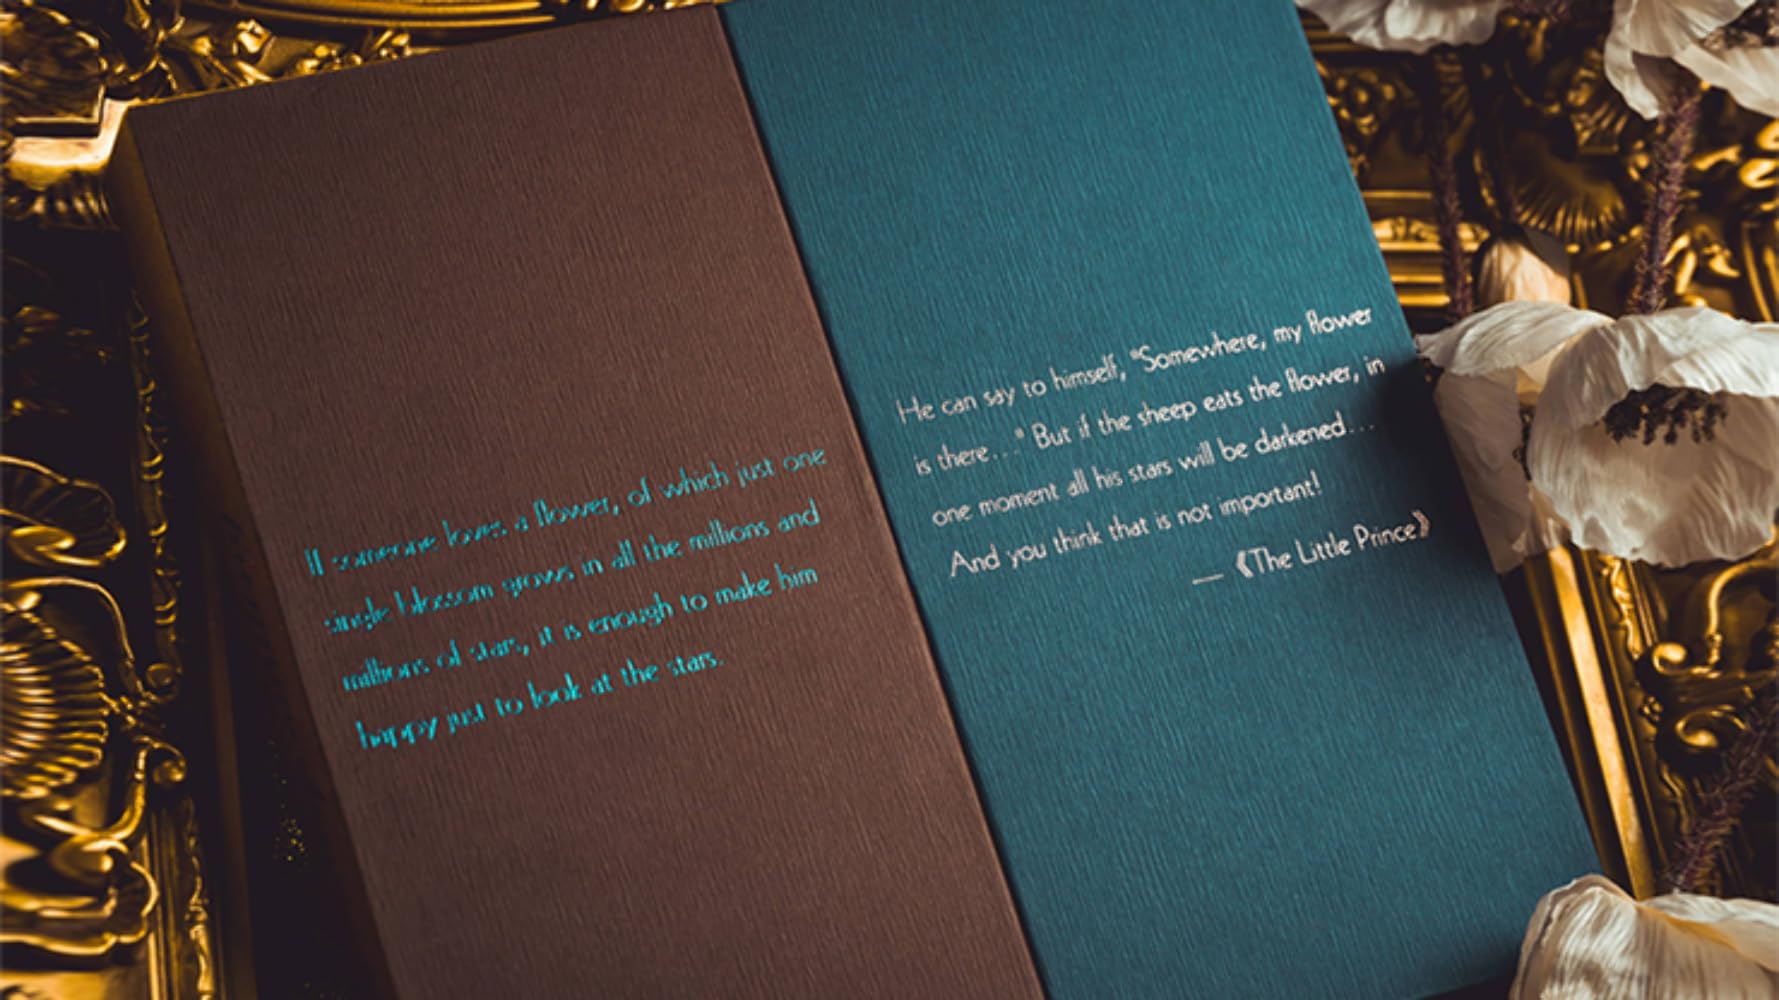 If someone loves a flower, of which just one
single blossom grows in all the millions and
millions of stars, it is enough to make him
happy just to look at the stars.
He can say to himself, "Somewhere, my flower
is there..." But if the sheep eats the flower, in
one moment all his stars will be darkened...
And you think that is not important!
— 《The Little Prince》